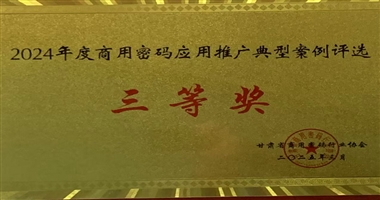 2024年度商用密码应用推广典型案例评选
三等奖
甘肃省商用密码行业协会
二〇二五年三月